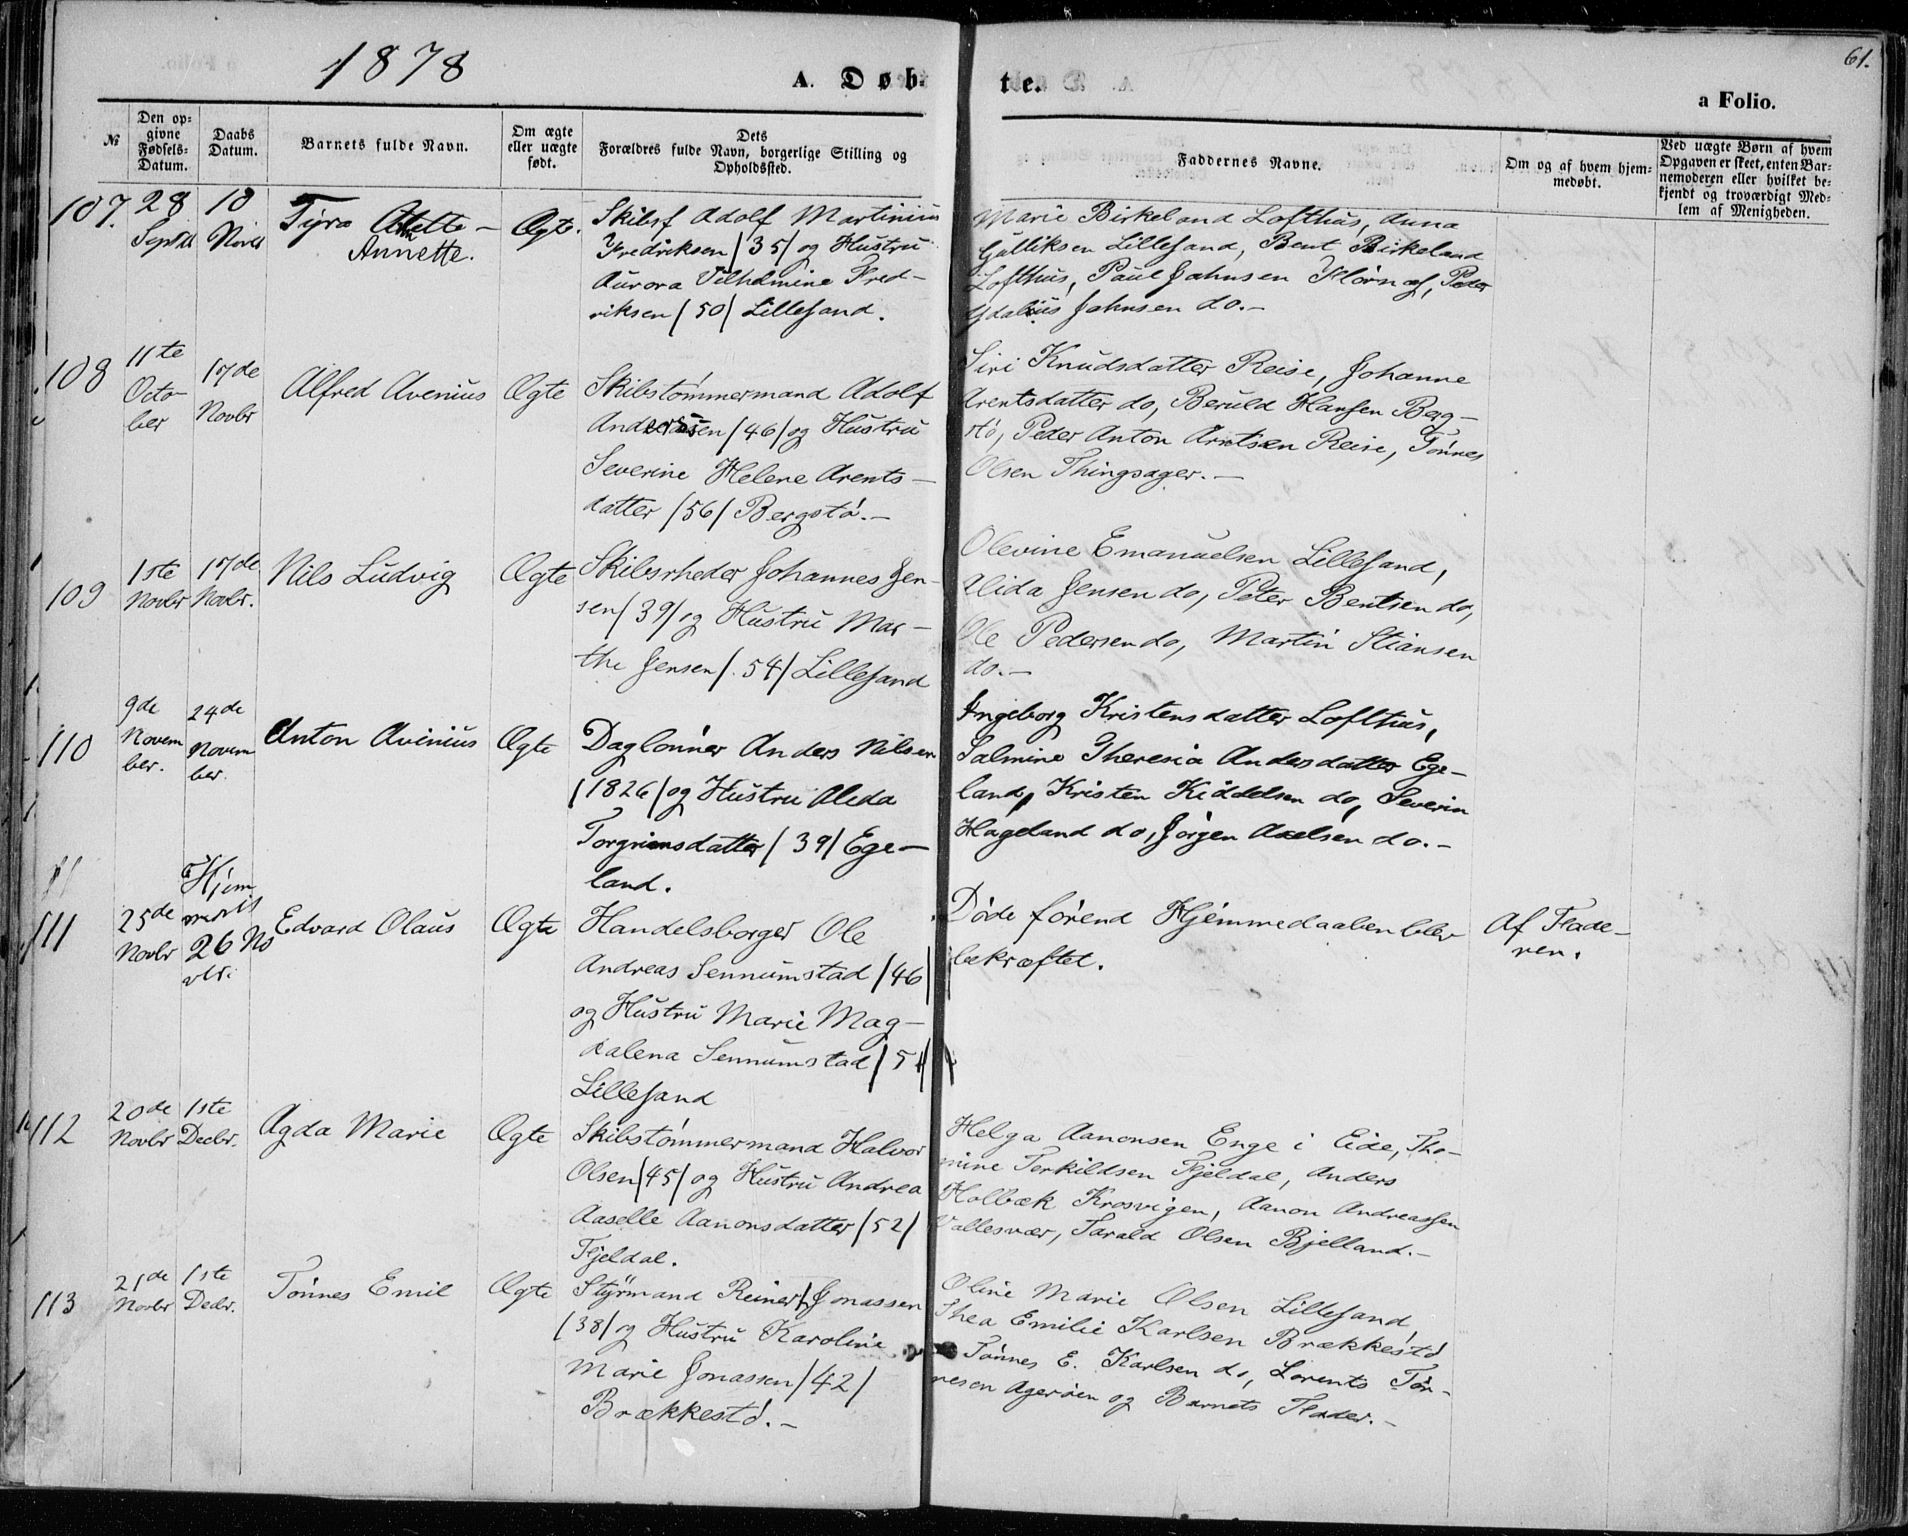 1878
A. Døbte.
61.
a Folio.
№
Den opgivne Fødsels-Datum.
Daabs Datum.
Barnets fulde Navn.
Om ægte eller uægte født.
Dets Forældres fulde Navn, borgerlige Stilling og Opholdssted.
Faddernes Navne.
Om og af hvem hjemmedøbt.
Ved uægte Børn af hvem Opgaven er skeet, enten Barnemoderen eller hvilket bekjendt og troværdigt Medlem af Menigheden.
107.
28
10
Tyra
Annette.
Ægte.
Skibsf Adolf Martinius
Fredriksen /35/ og Hustru
Aurora Vilhelmine Fred-
riksen /50/ Lillesand.
Marie Birkeland Lofthus, Anna
Gulliksen Lillesand, Bent Birkeland
Lofthus, Paul Jahnsen Peder
Jahnsen do.-
108
11te
Octo-
ber
17de
Novbr
Alfred Avenius
Ægte
Skibstømmermand Adolf
Andersen /46/ og Hustru
Severine Helene Arents-
datter /56/ Bergstø.-
Siri Knudsdatter Reise, Johanne
Arentsdatter do, Beruld Hansen Berg-
stø, Peder Anton Arntsen Reise, Tønnes
Olsen Thingsager.-
109
1ste
Novbr
17de
Novbr.
Nils Ludvig
Ægte
Skibsrheder Johannes Jen-
sen /39/ og Hustru Mar-
the Jensen /54/ Lillesand
Olevine Emanuelsen Lillesand,
Alida Jensen do, Peter Bentsen do,
Ole Pedersen do, Martin Stiansen
do.-
110
9de
Novem
ber.
24de
Novem
ber.
Anton Avinius
Ægte
Daglønner Anders Nilsen
/1826/ og Hustru Aleda
Torgrimsdatter /39/ Ege-
land.
Ingeborg Kristensdatter Lofthus,
Salmine Theresia Andersdatter Ege-
land, Kristen Kiddelsen do, Severin
Hageland do, Jørgen Axelsen do.-
111
25de
Novbr
Hjem
26 No
vbr.
Edvard Olaus
Ægte
Handelsborger Ole
Andreas Sennumstad /46/
og Hustru Marie Mag-
dalena Sennumstad
Lillesand
Døde førend Hjemmedaaben blev
bekræftet.
Af Fade-
ren.
112
20de
Novbr
1ste
Decbr.
Agda Marie
Ægte
Skibstømmermand Halvor
Olsen /45/ og Hustru Andrea
Aaselle Aanonsdatter /52/
Fjeldal.
Helga Aanonsen Enge i Eide, Tho-
mine Terkildsen Fjeldal, Anders
Holbæk Krosvigen, Aanon Andreassen
Vallesvær, Tarald Olsen Bjelland.-
113
21de
Novbr
1ste
Decbr.
Tønnes Emil
Ægte
Styrmand Reinert Jonassen
/38/ og Hustru Karoline
Marie Jonassen /42/
Brækkestø.-
Oline Marie Olsen Lillesand,
Thea Emilie Karlsen Brækkestø
Tønnes E. Karlsen do, Lorents Tøn-
nesen Agerøen og Barnets Fader.-